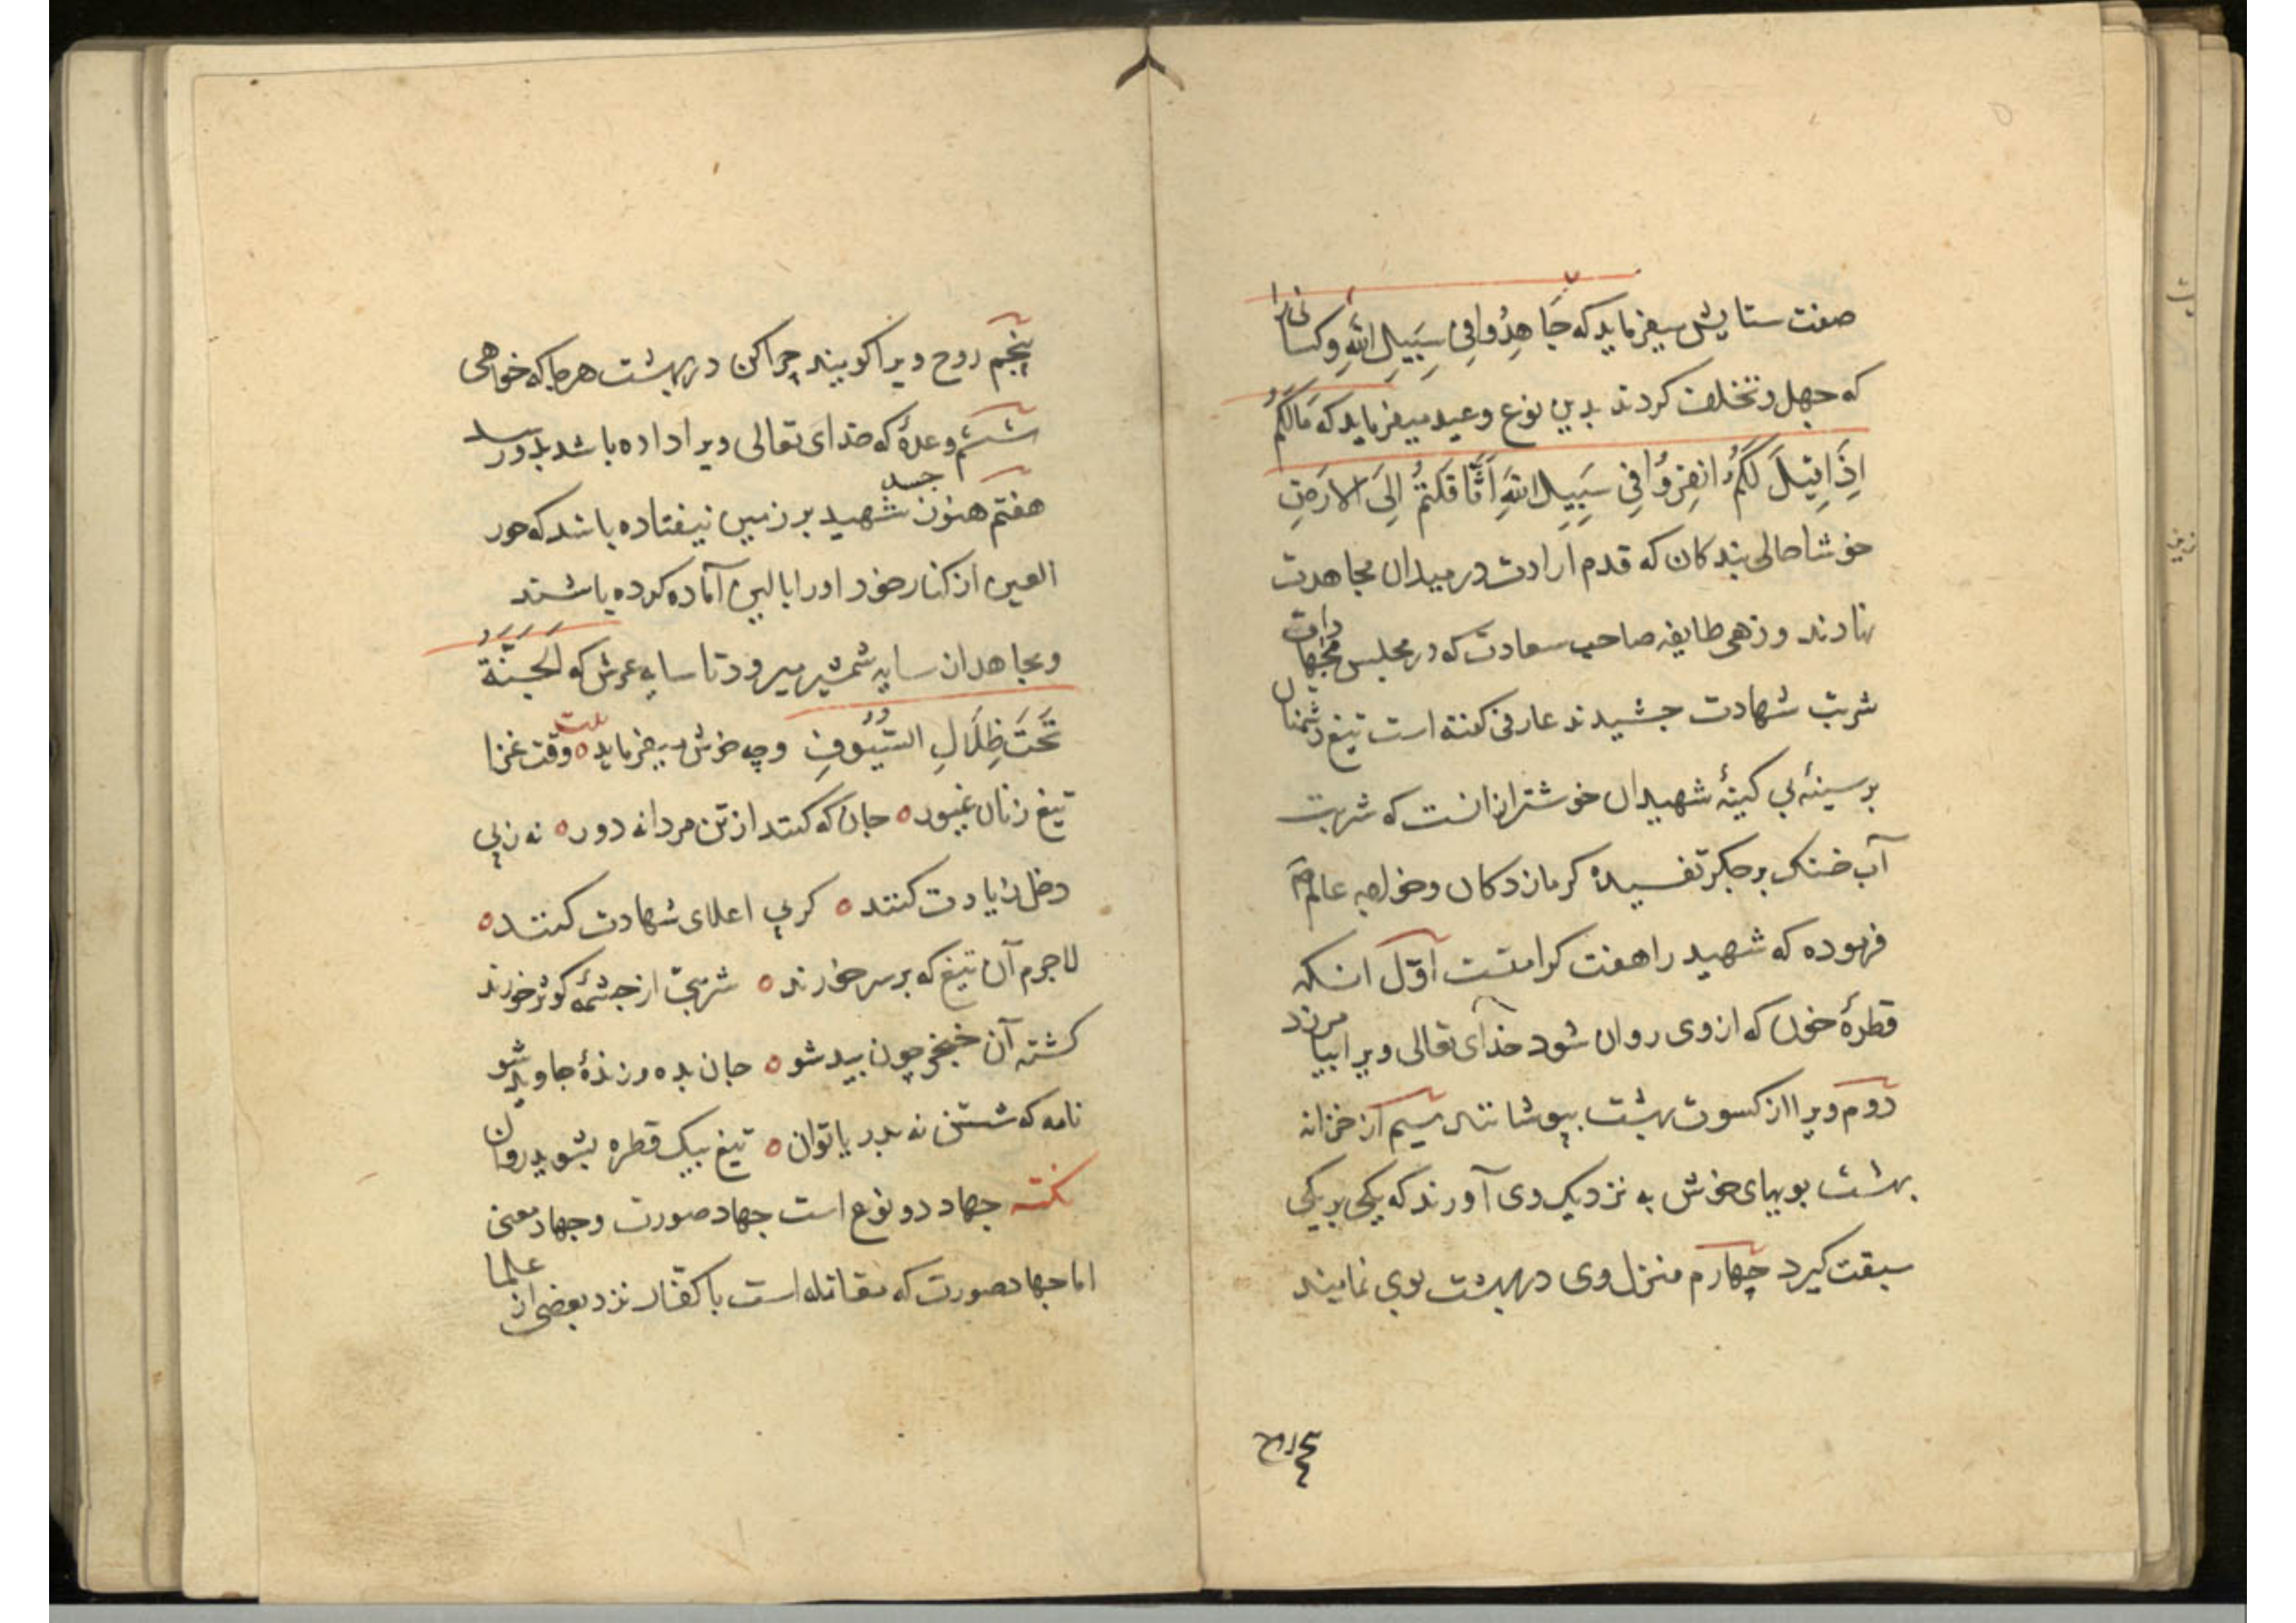 صفت ستایش میفرماید که جَاهِدُوا فِی سَبِیلِ اللّٰهِ و کسانی را
که جهل و تخلف کردند بدین نوع وعید میفرماید که مَالَکُمْ
اِذَا قِیْلَ لَکُمُ انفِرُوْا فِی سَبِیلِ اللّٰهِ اثَّاقَلْتُمْ اِلَی الارَضِ
خوشا حالی بندکان که قدم ارادت در میدان مجاهدت
نهادند و زهی طایفه صاحب سعادت که در مجلس
شربت شهادت چشیدند عارفی کفته است تیغ دشمنان
بر سینهٔ بی کینهٔ شهیدان خوشتر از انست که شربت
آب خنک بر جکر تفسیدهٔ کرمازدکان و خواجه عالم
فرموده که شهید را هفت کرامتست اوّل انکه
قطرهٔ خون که از وی روان شود خدای تعالی ویرا بیامرزد
دوم ویرا از کسوت بهشت بپوشانند سیم از خزانه
بهشت بویهای خوش به نزدیک وی آورند که یکی بر یکی
سبقت کیرد چهارم منزل وی در بهشت بوی نمایند
پنجم روح ویرا کویند چرا کن در بهشت هر جا که خواهی
ششم وعدهٔ که خدای تعالی ویرا داده باشد بدو رسد
هفتم هنوز جسد شهید بر زمین نیفتاده باشد که حور
العین از کنار خود اورا بالین آماده کرده باشند
و مجاهدان سایه شمشیر میرود تا سایه عرش که اَلْجَنَّةُ
تَحْتَ ظِلَالِ السُّیُوفِ و چه خوش میفرماید بیت وقت غزا
تیغ زنان غیور جان که کنند از تن مردانه دور نه ز پی
دخل زیادت کنند کز پی اعلای شهادت کنند
لاجرم آن تیغ که بر سر خورند شربتی از چشمهٔ کوثر خورند
کشته آن خنجر چون بید شو جان بده و زندهٔ جاوید شو
نامه که شستن نه بدریا توان تیغ بیک قطره بشوید روان
نکته جهاد دو نوع است جهاد صورت و جهاد معنی
اما جهاد صورت که مقاتله است با کفّار نزد بعضی از علما